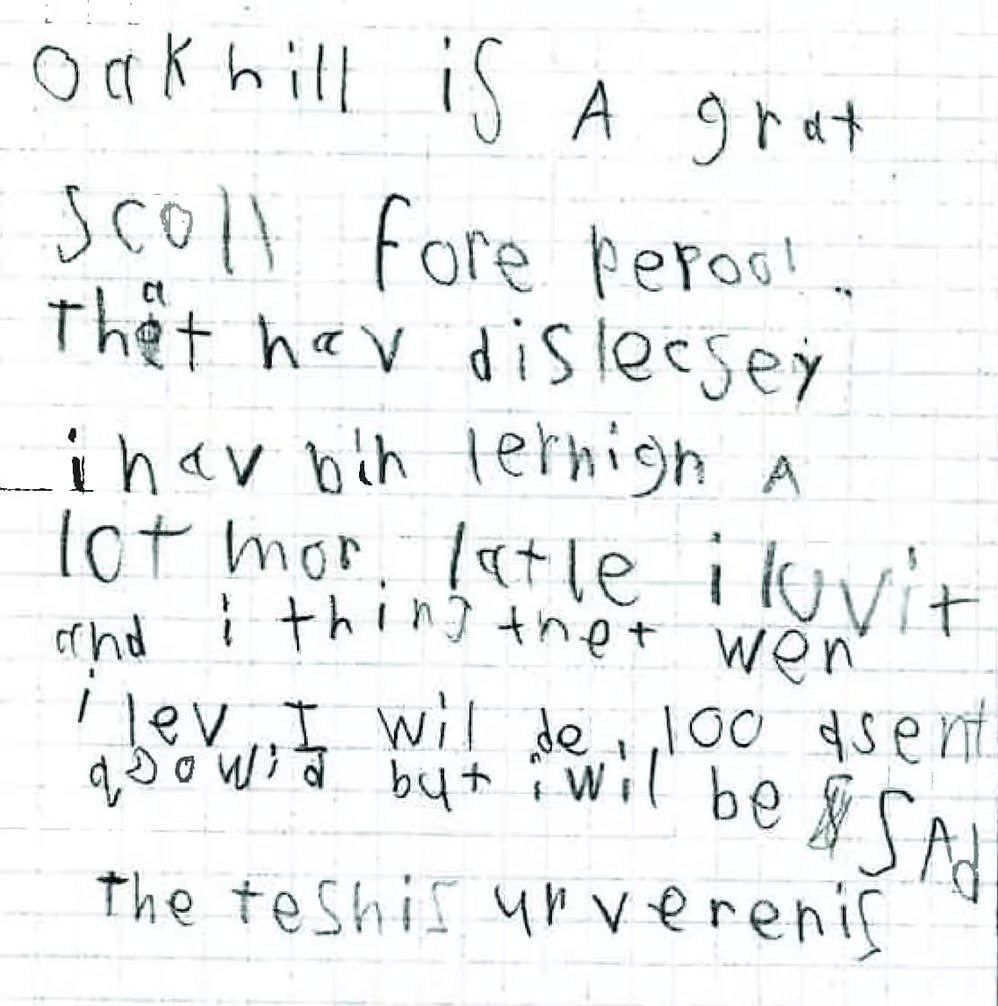 Oakhill is A grat
Scoll fore pepool
That hav dislecsey
i hav bin lernign A
lot mor. latle i luvit
and i thing thet wen
i lev I wil de 100 dsent
but i wil be SAd
the teshis ur verenis